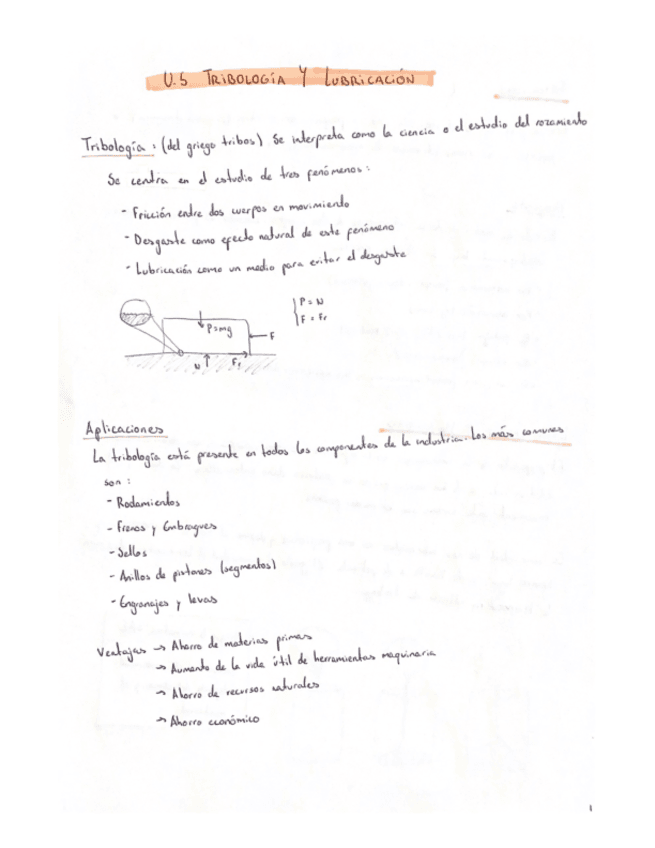 U.5 TRIBOLOGÍA Y LUBRICACIÓN
Tribología: (del griego tribos) Se interpreta como la ciencia o el estudio del rozamiento
Se centra en el estudio de tres fenómenos:
- Fricción entre dos cuerpos en movimiento
- Desgaste como efecto natural de este fenómeno
- Lubricación como un medio para evitar el desgaste
P=mg
F
N
Fr
P = N
F = Fr
Aplicaciones
La tribología está presente en todos los componentes de la industria. Los más comunes
son:
- Rodamientos
- Frenos y Embragues
- Sellos
- Anillos de pistones (segmentos)
- Engranajes y levas
Ventajas → Ahorro de materias primas
→ Aumento de la vida útil de herramientas maquinaria
→ Ahorro de recursos naturales
→ Ahorro económico
1